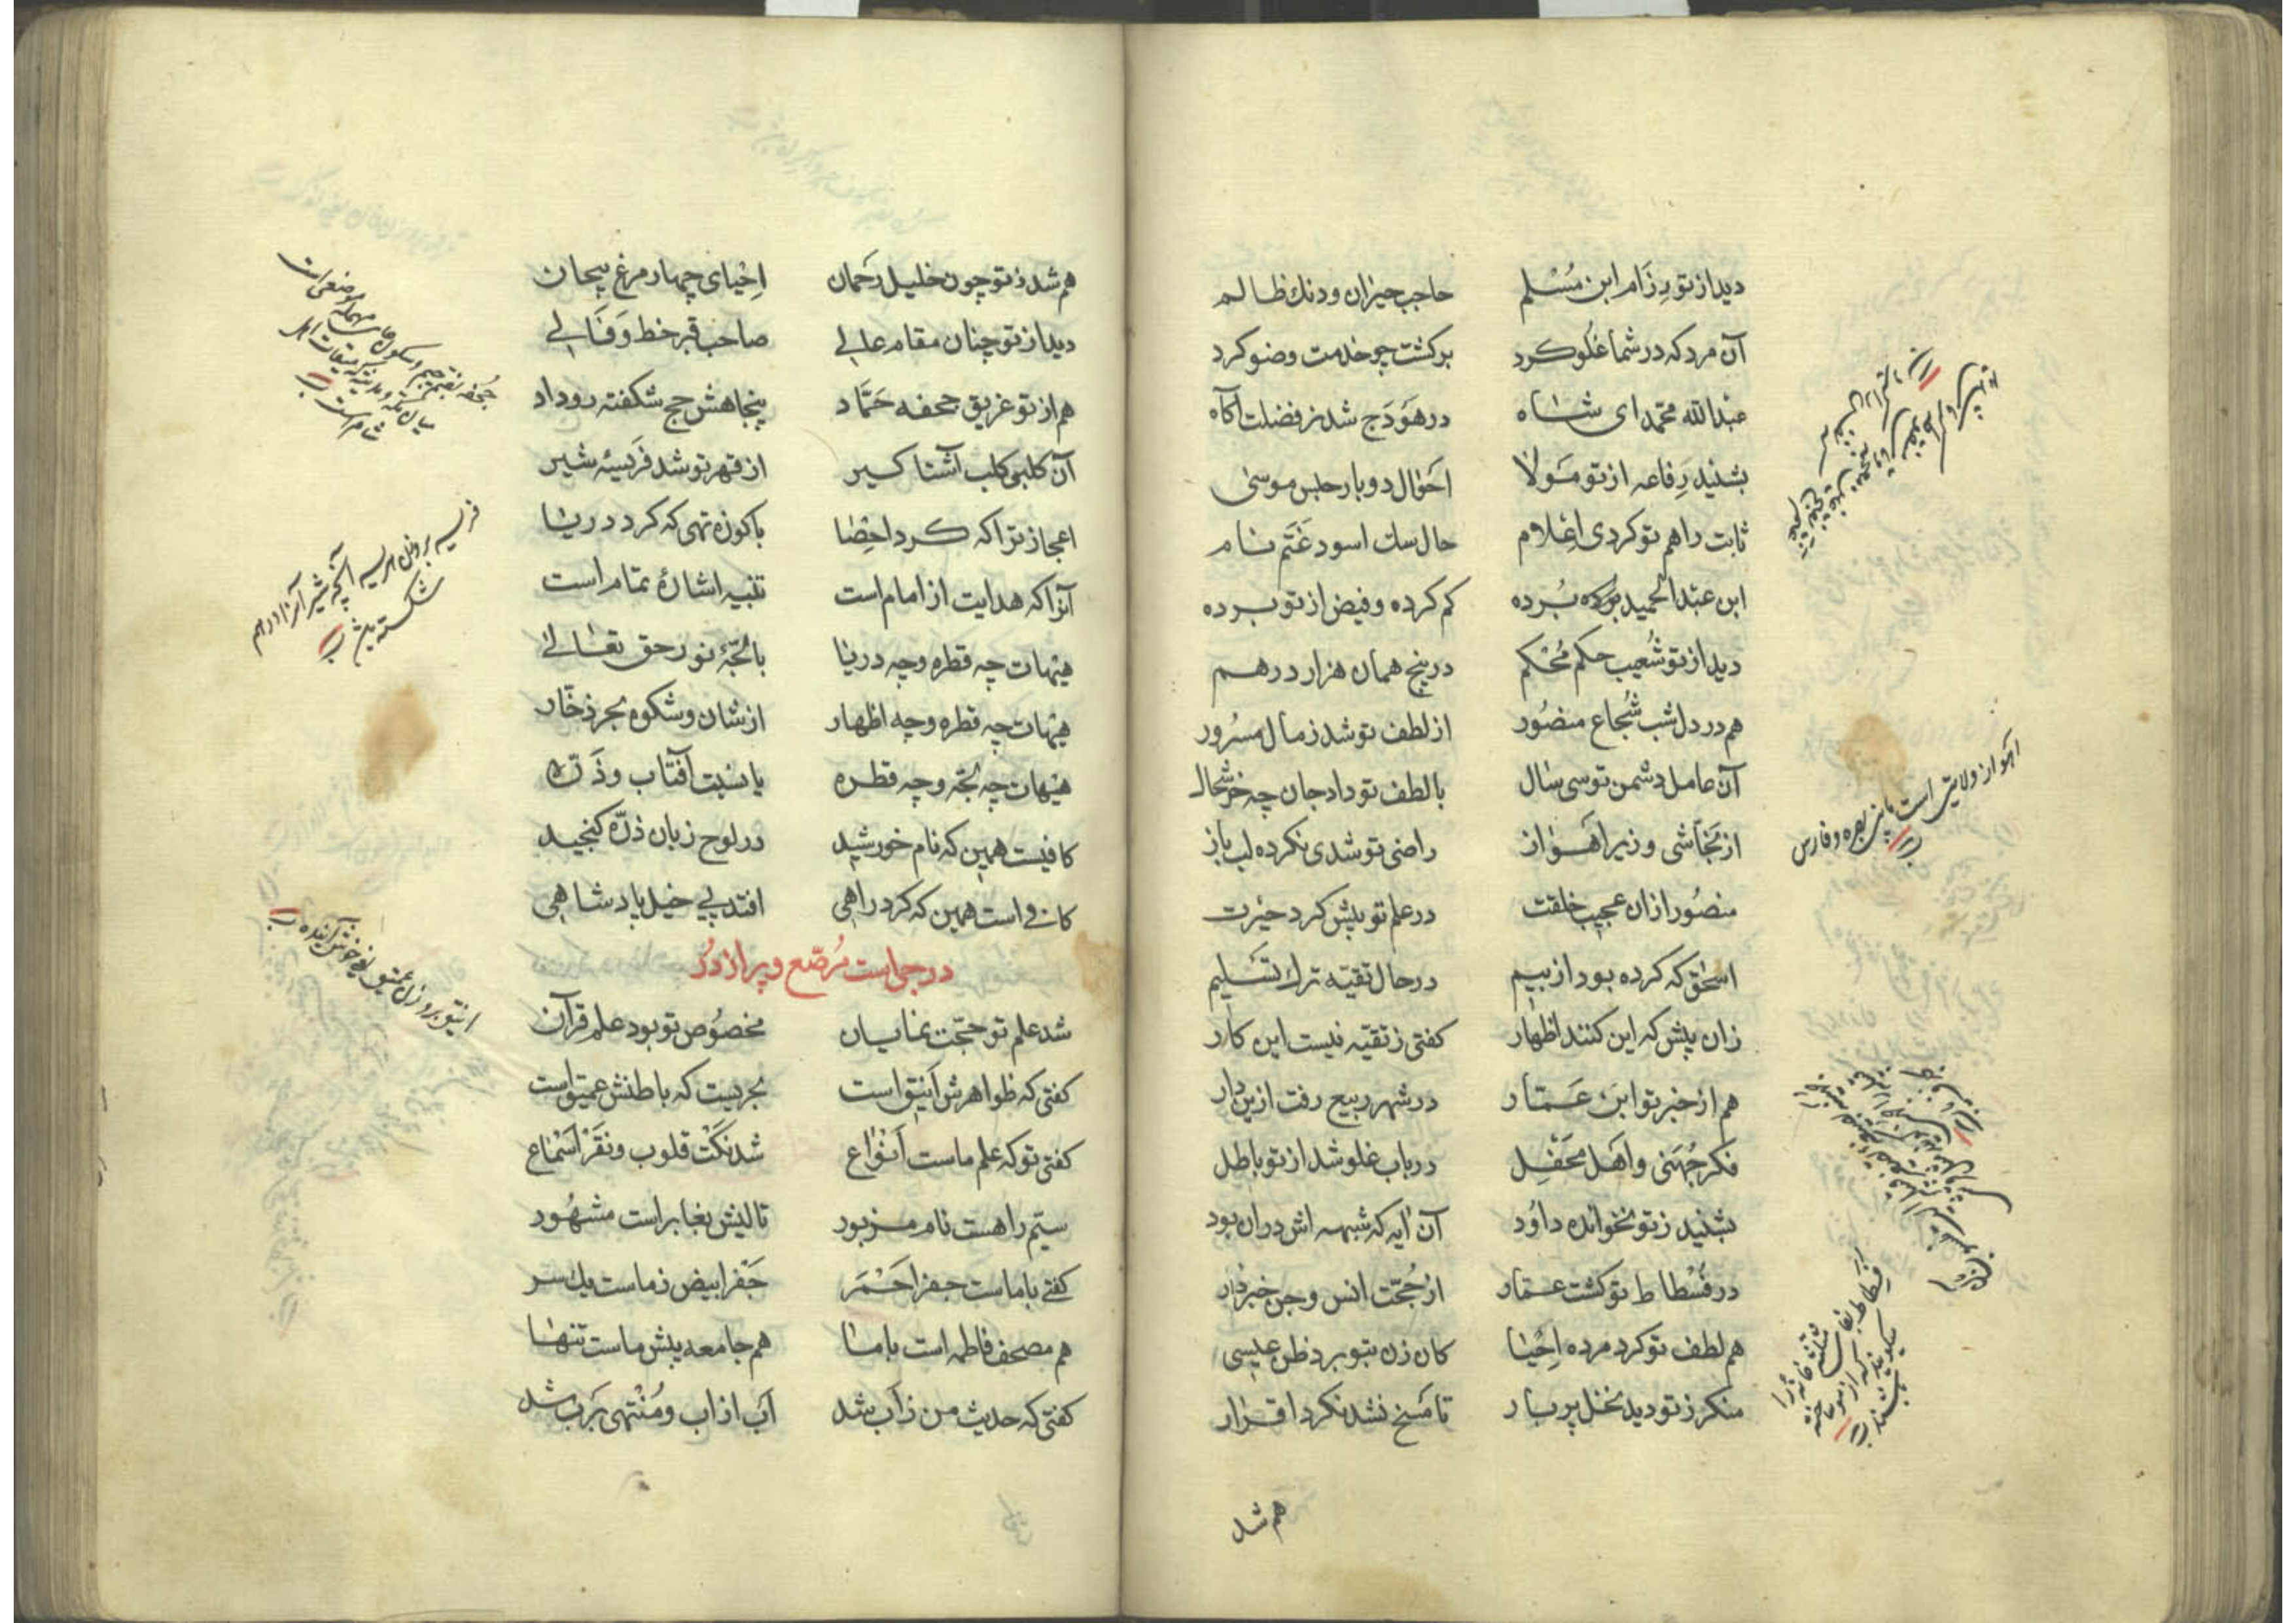 دید از تو رزام ابن مسلم حاجب حیران و دنك ظالم
آن مرد که در شما غلو کرد برکشت چو خدمت وضو کرد
عبدالله محمد ای شاه در هودج شد ز فضلت آکاه
بشنید رفاعه از تو مولا احوال دوبار حبس موسی
ثابت را هم تو کردی اعلام حال سك اسود غتم نام
ابن عبدالحمید بوده برده کم کرده و فیض از تو برده
دید از تو شعیب حکم محکم در پنج همان هزار درهم
هم در دل شب شجاع منصور از لطف تو شد ز مال مسرور
آن عامل دشمن تو سی سال با لطف تو داد جان چه خوشحال
از نجاشی وزیر اهواز راضی تو شدی نکرده لب باز
منصور از ان عجیب خلقت در علم تو بیش کرد حیرت
اسحق که کرده بود از بیم در حال تقیه ترك تسلیم
زان پیش که این کنند اظهار کفتی ز تقیه نیست این کار
هم از خبر تو ابن عمار در شهر ربیع رفت ازین دار
فکر جهنی و اهل محفل در باب غلو شد از تو باطل
بشنید ز تو نخوانده داود آن ایه که شبهه اش دران بود
در فسطاط تو کشت عمار از حجت انس و جن خبردار
هم لطف تو کرد مرده احیا کان زن بتو برد ظن عیسی
منکر ز تو دید نخل پربار تا مسخ نشد نکرد اقرار
اهواز ولایتی است مابین بصره و فارس
هم شد
هم شد ز تو چون خلیل رحمان احیای چهار مرغ بیجان
دید از تو چنان مقام عالی صاحب قبر خط وفالی
هم از تو غریق جحفه حماد پنجاهش حج شکفته رو داد
آن کلبی کلب آشتا کیر از قهر تو شد فریسه شیر
اعجاز ترا که کرد احضا با کوزه تهی که کرد دریا
آنرا که هدایت از امام است تنبیه اشاره تمام است
هیهات چه قطره و چه دریا با لجه نور حق تعالی
هیهات چه قطره و چه اظهار از شان و شکوه بحر ذخار
هیهات چه لجه و چه قطره یا نسبت آفتاب و ذره
کافیست همین که نام خورشید در لوح زبان ذره کنجید
کافی است همین که کرد راهی افتد پی خیل پادشاهی
درجی است مرصع و پر از در
شد علم تو حجت نمایان مخصوص تو بود علم قرآن
کفتی که ظواهرش انیق است بحریست که باطنش عمیق است
کفتی تو که علم ماست انواع شد نکت قلوب و نقر اسماع
سیم را هست نام مزبور تالیش بغابر است مشهور
کفتی با ماست جفر احمر جفر ابیض ز ماست یك سر
هم مصحف فاطمه است با ما هم جامعه پیش ماست تنها
کفتی که حدیث من ز آب شد آب از اب و منتهی برب شد
جحفه بضم جیم و سکون حای مهمله موضعی است
میان مکه و مدینه که میقات اهل
شام است
فریسه بر وزن هریسه آنچه شیر آنرا در هم
شکسته
انیق بر وزن عمیق یعنی خوش آینده